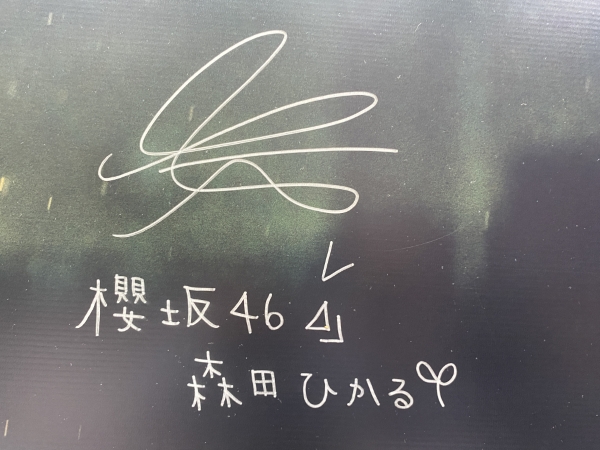 櫻坂46
森田ひかる